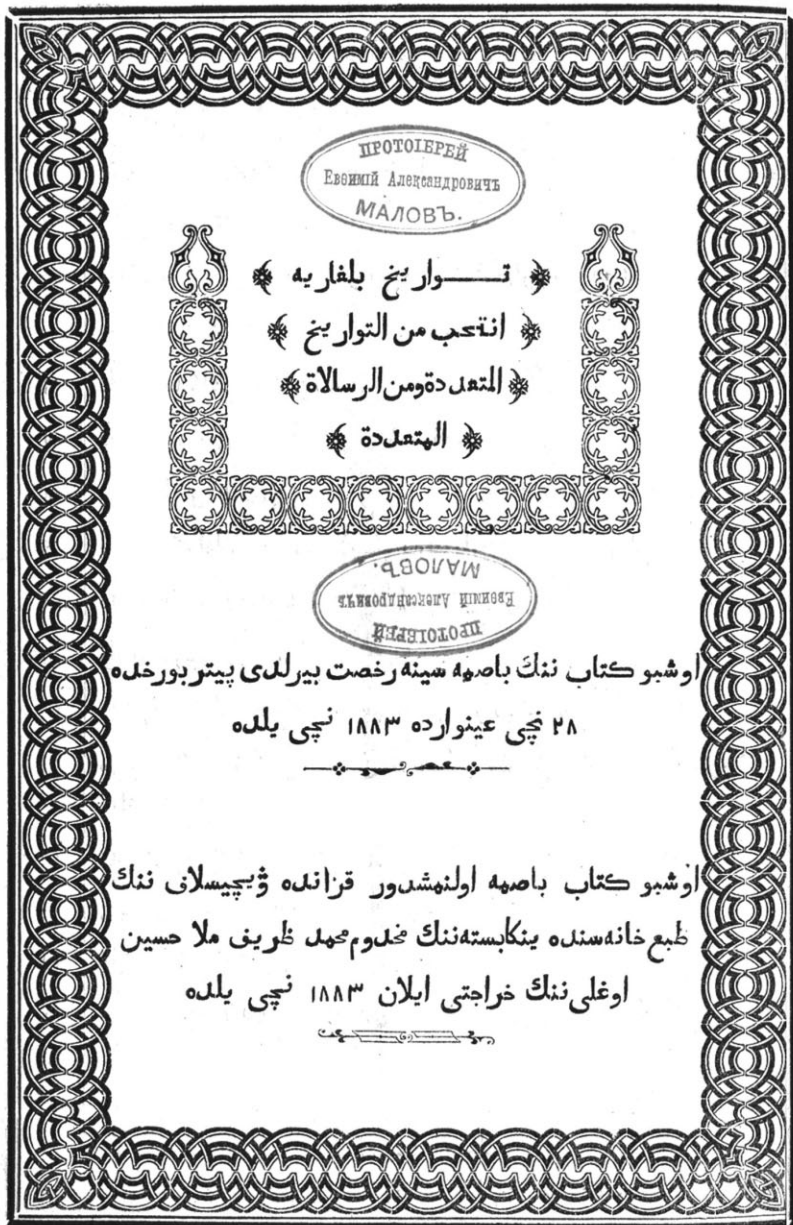 ПРОТОІЕРЕЙ
Евѳимій Александровичъ
МАЛОВЪ.
تـــواريخ بلغاريه
انتخب من التواريخ
المتعددة ومن الرسالاة
المتعددة
ПРОТОІЕРЕЙ
Евѳимій Александровичъ
МАЛОВЪ.
اوشبو كتاب ننك باصمه سينه رخصت بيرلدى پيتربورخده
٢٨ نچى عينوارده ١٨٨٣ نچى يلده
اوشبو كتاب باصمه اولنمشدور قزانده ۋيچيسلاف ننك
طبع خانه سنده ينكابسته ننك مخدوم محمد ظريف ملا حسين
اوغلى ننك خراجتى ايلان ١٨٨٣ نچى يلده